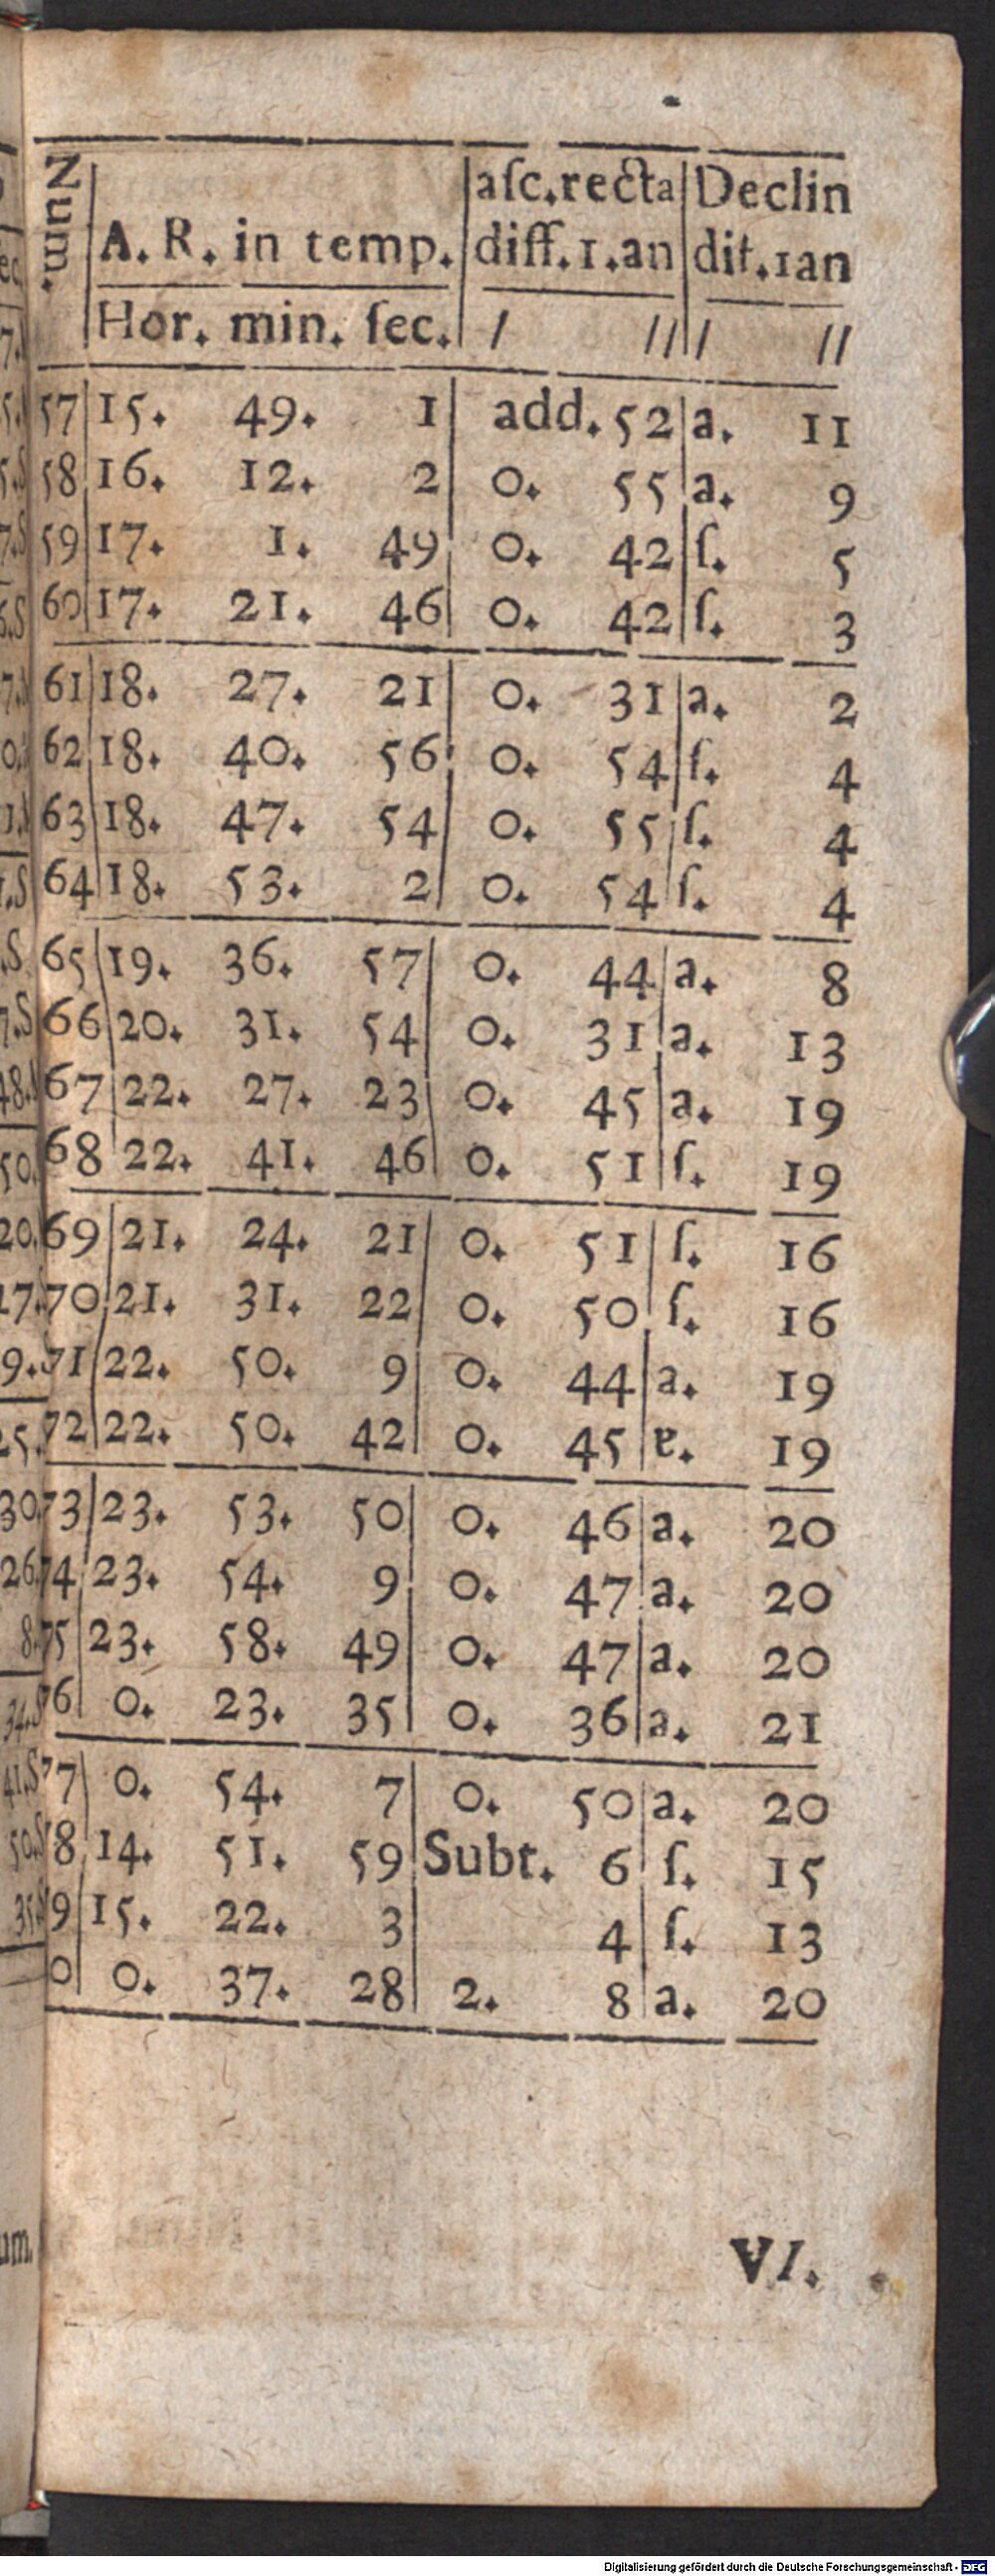 Num. aſc.recta Declin
A. R. in temp. diff.1.an dif.1an
Hor. min. ſec. / // / //
57 15. 49. 1 add. 52 a. 11
58 16. 12. 2 0. 55 a. 9
59 17. 1. 49 0. 42 ſ. 5
60 17. 21. 46 0. 42 ſ. 3
61 18. 27. 21 0. 31 a. 2
62 18. 40. 56 0. 54 ſ. 4
63 18. 47. 54 0. 55 ſ. 4
64 18. 53. 2 0. 54 ſ. 4
65 19. 36. 57 0. 44 a. 8
66 20. 31. 54 0. 31 a. 13
67 22. 27. 23 0. 45 a. 19
68 22. 41. 46 0. 51 ſ. 19
69 21. 24. 21 0. 51 ſ. 16
70 21. 31. 22 0. 50 ſ. 16
71 22. 50. 9 0. 44 a. 19
72 22. 50. 42 0. 45 a. 19
73 23. 53. 50 0. 46 a. 20
74 23. 54. 9 0. 47 a. 20
75 23. 58. 49 0. 47 a. 20
76 0. 23. 35 0. 36 a. 21
77 0. 54. 7 0. 50 a. 20
8 14. 51. 59 Subt. 6 ſ. 15
9 15. 22. 3 4 ſ. 13
0 0. 37. 28 2. 8 a. 20
VI.
Digitalisierung gefördert durch die Deutsche Forschungsgemeinschaft - DFG